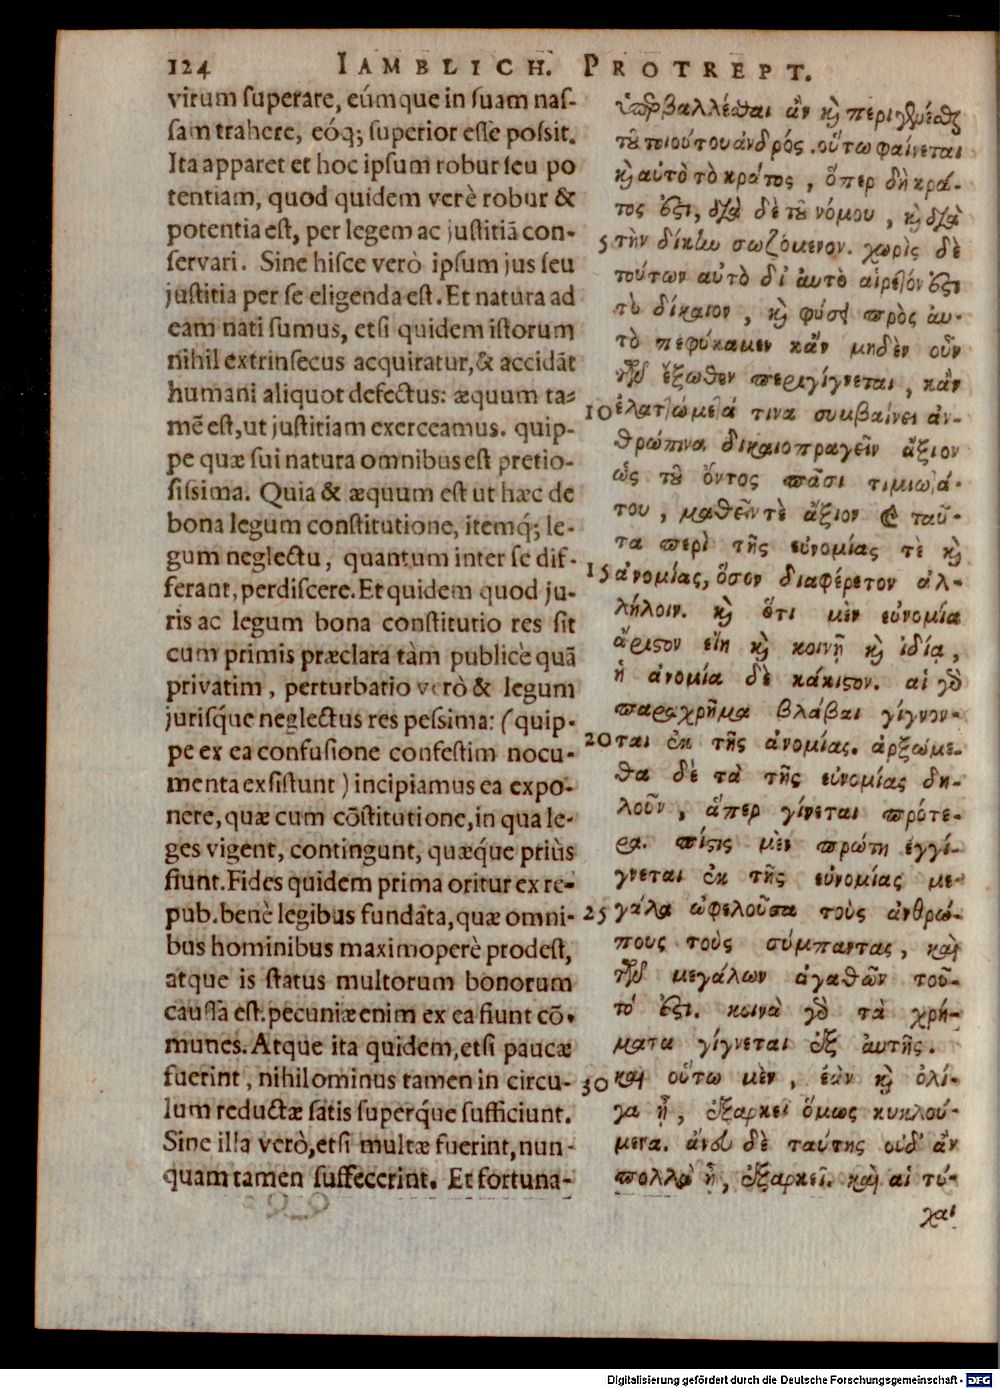 124 IAMBLICH. PROTREPT.
virum superare, eúmque in suam nas-
sam trahere, eóq; superior esse possit.
Ita apparet et hoc ipsum robur seu po
tentiam, quod quidem verè robur &
potentia est, per legem ac justitiã con-
servari. Sine hisce verò ipsum jus seu
justitia per se eligenda est. Et natura ad
eam nati sumus, etsi quidem istorum
nihil extrinsecus acquiratur, & accidãt
humani aliquot defectus: æquum ta-
mẽ est, ut justitiam exerceamus. quip-
pe quæ sui natura omnibus est pretio-
sissima. Quia & æquum est ut hæc de
bona legum constitutione, itemq́; le-
gum neglectu, quantum inter se dif-
ferant, perdiscere. Et quidem quod ju-
ris ac legum bona constitutio res sit
cum primis præclara tàm publicè quã
privatim, perturbatio verò & legum
jurisq́ue neglectus res pessima: (quip-
pe ex ea confusione confestim nocu-
menta exsistunt) incipiamus ea expo-
nere, quæ cum cõstitutione, in qua le-
ges vigent, contingunt, quæq́ue priùs
fiunt. Fides quidem prima oritur ex re-
pub. benè legibus fundata, quæ omni-
bus hominibus maximoperè prodest,
atque is status multorum bonorum
caussa est. pecuniæ enim ex ea fiunt cõ-
munes. Atque ita quidem, etsi paucæ
fuerint, nihilominus tamen in circu-
lum reductæ satis superq́ue sufficiunt.
Sine illa verò, etsi multæ fuerint, nun-
quam tamen suffecerint. Et fortuna-
ὑπερβαλλέσθαι ἂν καὶ περιγενέσθαι
τοῦ τοιούτου ἀνδρός. οὕτω φαίνεται
καὶ αὐτὸ τὸ κράτος, ὅπερ δὴ κρά-
τος ἐστι, διὰ δὲ τοῦ νόμου, καὶ διὰ
5 τὴν δίκην σωζόμενον. χωρὶς δὲ
τούτων αὐτὸ δι' αὐτὸ αἱρετὸν ἐστι
τὸ δίκαιον, καὶ φύσει πρὸς αὐ-
τὸ πεφύκαμεν κἂν μηδὲν οὖν
τῶν ἔξωθεν περιγίγνεται, κἂν
10 ἐλαττώματά τινα συμβαίνει ἀν-
θρώπινα δικαιοπραγεῖν ἄξιον
ὡς τοῦ ὄντος πᾶσι τιμιωτά-
του, μαθεῖν τὲ ἄξιον καὶ ταῦ-
τα περὶ τῆς εὐνομίας τὲ καὶ
15 ἀνομίας, ὅσον διαφέρετον ἀλ-
λήλοιν. καὶ ὅτι μὲν εὐνομία
ἄριστον εἴη καὶ κοινῇ καὶ ἰδίᾳ,
ἡ ἀνομία δὲ κάκιστον. αἱ γὰρ
παραχρῆμα βλάβαι γίγνον-
20 ται ἐκ τῆς ἀνομίας. ἀρξώμε-
θα δὲ τὰ τῆς εὐνομίας δη-
λοῦν, ἅπερ γίνεται πρότε-
ρα. πίστις μὲν πρώτη ἐγγί-
γνεται ἐκ τῆς εὐνομίας με-
25 γάλα ὠφελοῦσα τοὺς ἀνθρώ-
πους τοὺς σύμπαντας, καὶ
τῶν μεγάλων ἀγαθῶν τοῦ-
τό ἐστι. κοινὰ γὰρ τὰ χρή-
ματα γίγνεται ἐξ αὐτῆς.
30 καὶ οὕτω μὲν, ἐὰν καὶ ὀλί-
γα ᾖ, ἐξαρκεῖ ὅμως κυκλού-
μενα. ἄνευ δὲ ταύτης οὐδ' ἂν
πολλὰ ᾖ, ἐξαρκεῖ. καὶ αἱ τύ-
χαι
Digitalisierung gefördert durch die Deutsche Forschungsgemeinschaft - DFG